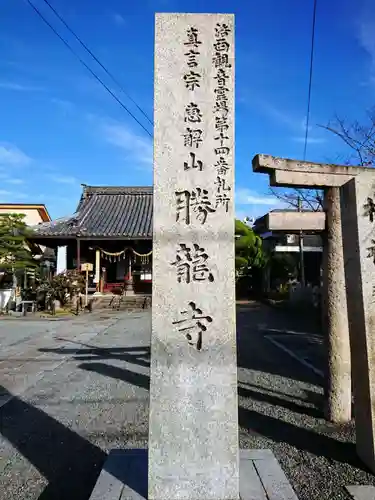 洛西観音霊場第十四番札所
真言宗 恵解山
勝龍寺